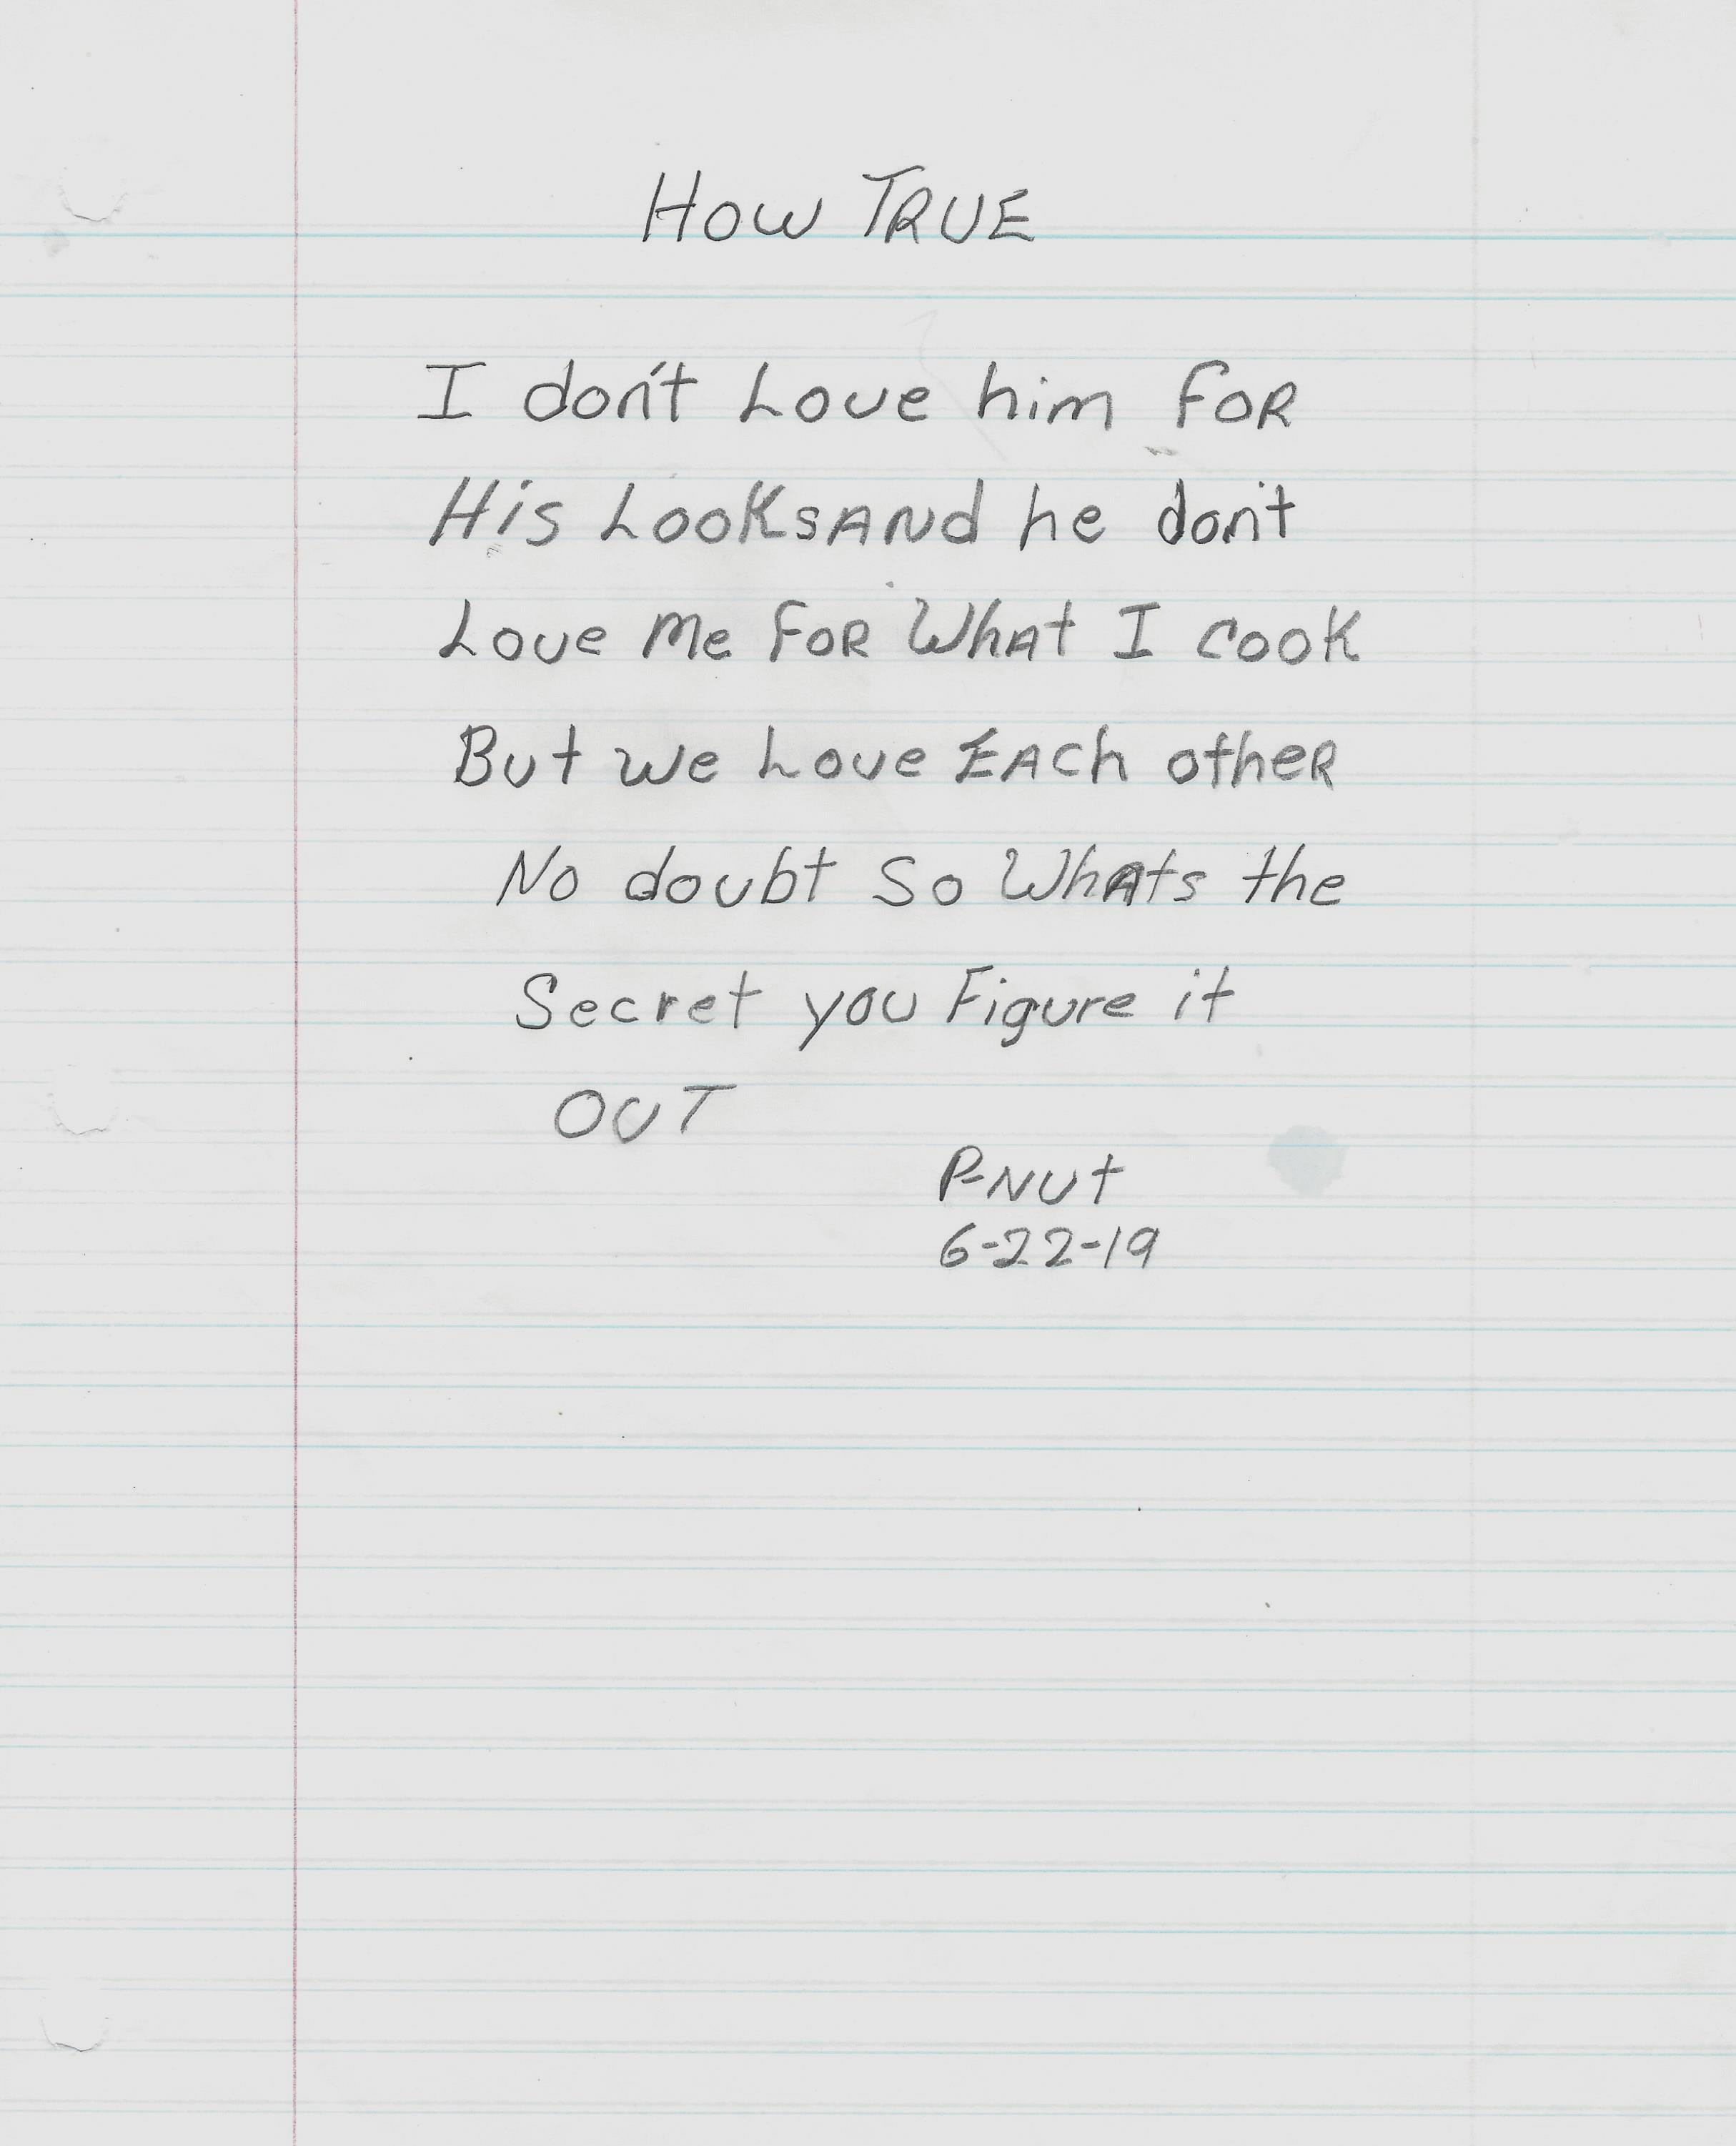 HOW TRUE
I don't Love him FOR
His LOOKSANd he don't
Love Me FOR WhAt I COOK
But we Love EACh otheR
No doubt So WhAts the
Secret you Figure it
OUT
P-NUt
6-22-19